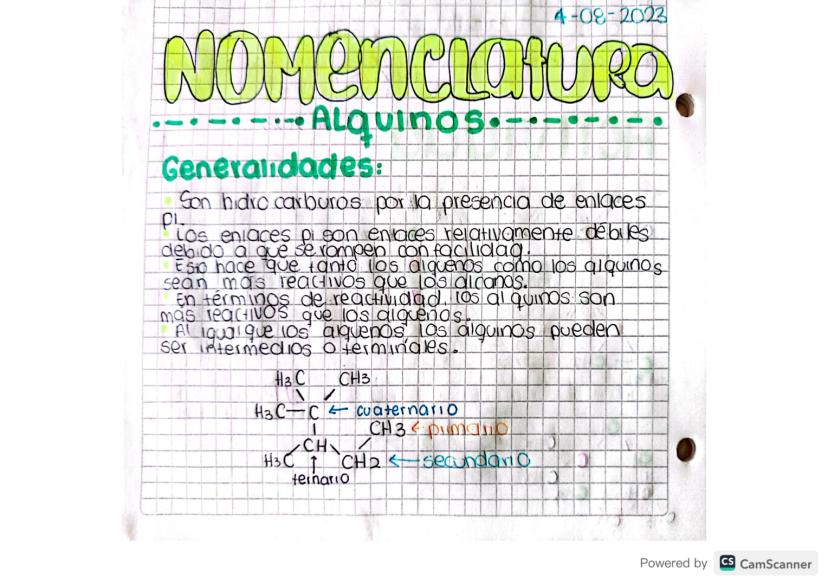 4-08-2023
NOMENCLATURA
ALQUINOS
Generalidades:
Son hidrocarburos por la presencia de enlaces
pi.
Los enlaces pi son enlaces relativamente débiles
debido a que se rompen con facilidad.
Esto hace que tanto los alquenos como los alquinos
sean más reactivos que los alcanos.
En términos de reactividad, los alquinos son
más reactivos que los alquenos.
Al igual que los alquenos los alquinos pueden
ser intermedios o terminales.
H3C CH3
H3C—C ← cuaternario
CH3 ← primario
CH
H3C ↑ CH2 ← secundario
ternario
Powered by CS CamScanner